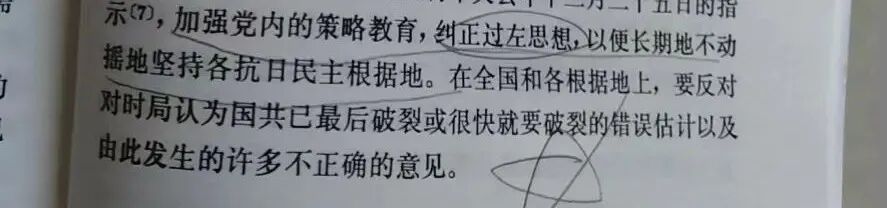 十二月二十五日的指
示⑺，加强党内的策略教育，纠正过左思想，以便长期地不动
摇地坚持各抗日民主根据地。在全国和各根据地上，要反对
对时局认为国共已最后破裂或很快就要破裂的错误估计以及
由此发生的许多不正确的意见。